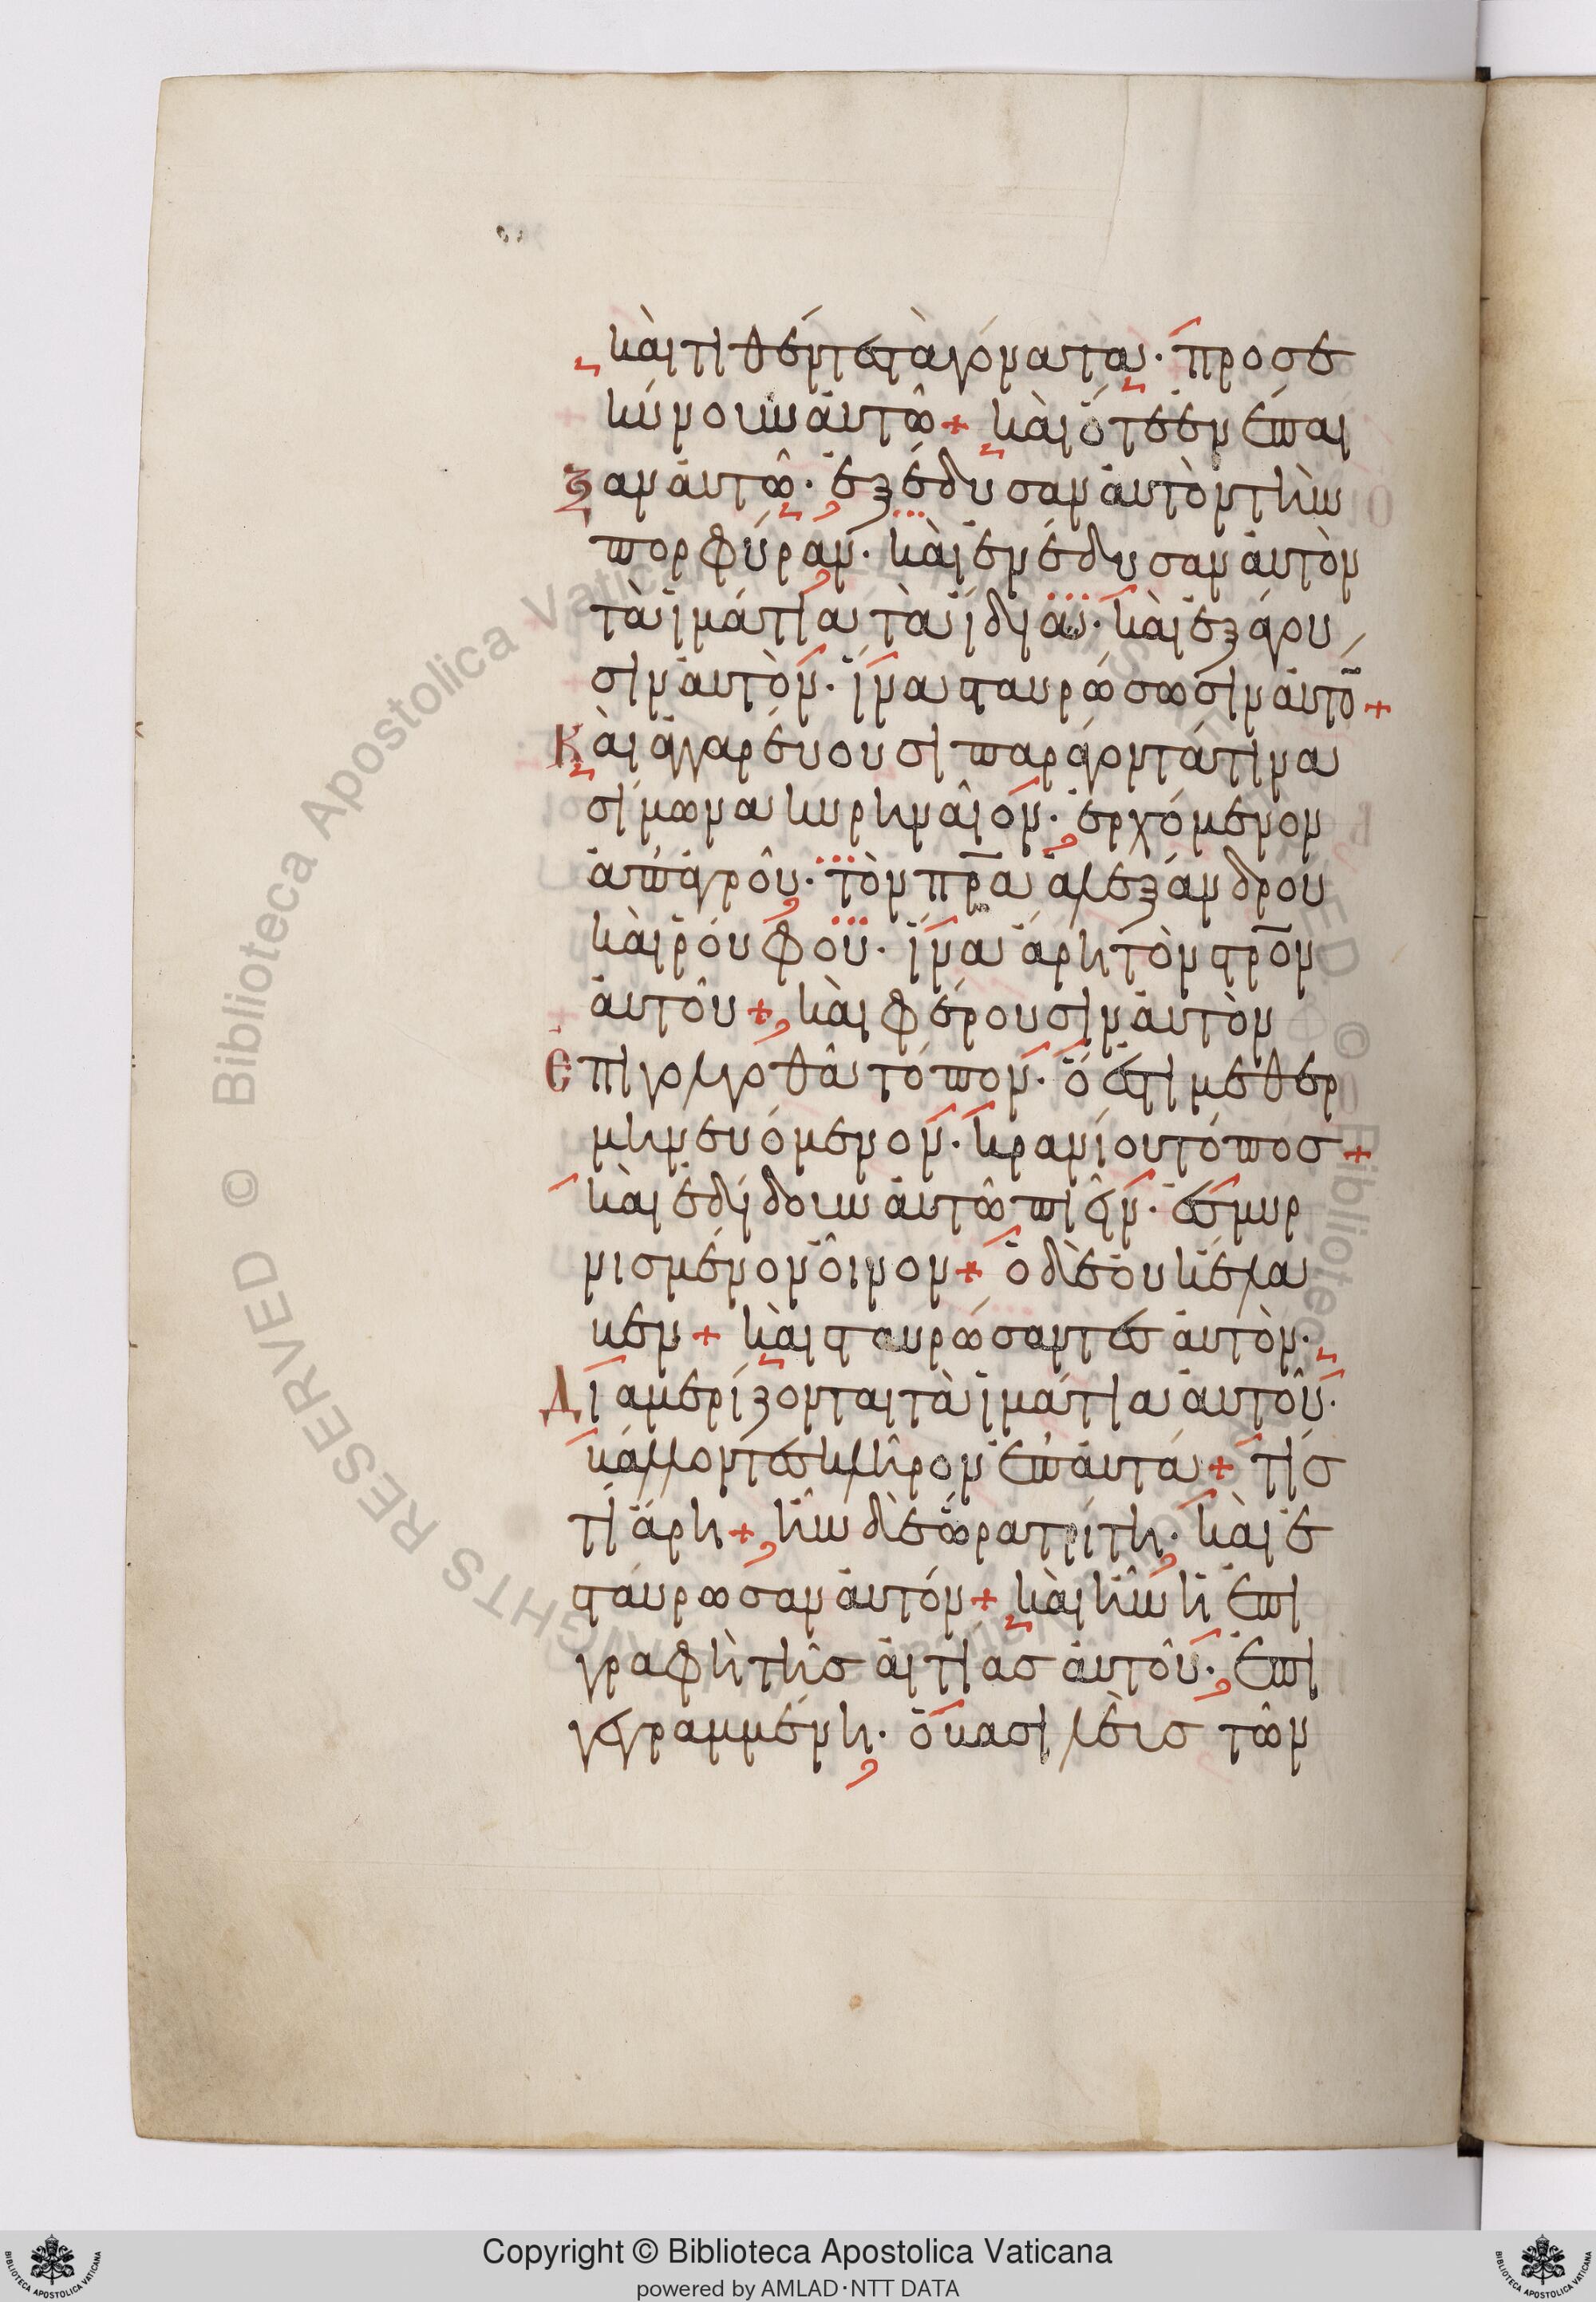 καὶ τιθέντες τὰ γόνατα· προσε
κύνουν ἀυτῶ + καὶ ὅτε ἐνέπαι
ξαν ἀυτῶ· ἐξέδυσαν ἀυτὸν τὴν
πορφύραν· καὶ ἐνέδυσαν ἀυτὸν
τὰ ἱμάτια τὰ ἴδια· καὶ ἐξάγου
σιν ἀυτὸν· ἵνα σταυρώσωσιν ἀυτὸ̄ +
Καὶ ἀγγαρέυουσι παράγοντά τινα
σίμωνα κυρηναῖον· ἐρχόμενον
ἀπ' ἀγροῦ· τὸν πρ̅α ἀλεξάνδρου
καὶ ῥούφου· ἵνα ἄρη τὸν στρ̅ον
ἀυτοῦ + καὶ φέρουσιν ἀυτὸν
Ἐπὶ γολγοθᾶ τόπον· ὅ ἐστι μεθερ
μηνευόμενον· κρανίου τόπος +
καὶ ἐδίδουν ἀυτῶ πιεῖν· ἐσμυρ
νισμένον οἶνον + ὁ δὲ ὀυκ ἔλα
βεν + καὶ σταυρώσαντες ἀυτὸν·
Διαμερίζονται τὰ ἱμάτια ἀυτοῦ·
βάλλοντες κλῆρον ἐπ' ἀυτά + τίς
τί ἄρη + ἦν δὲ ὥρα τρίτη· καὶ ἐ
σταύρωσαν ἀυτόν + καὶ ἦν ἡ ἐπι
γραφὴ τῆς ἀιτίας ἀυτοῦ· ἐπι
γεγραμμένη· ὁ βασιλεὺς τῶν
Copyright © Biblioteca Apostolica Vaticana
powered by AMLAD·NTT DATA
Biblioteca Apostolica Vaticana
© RIGHTS RESERVED